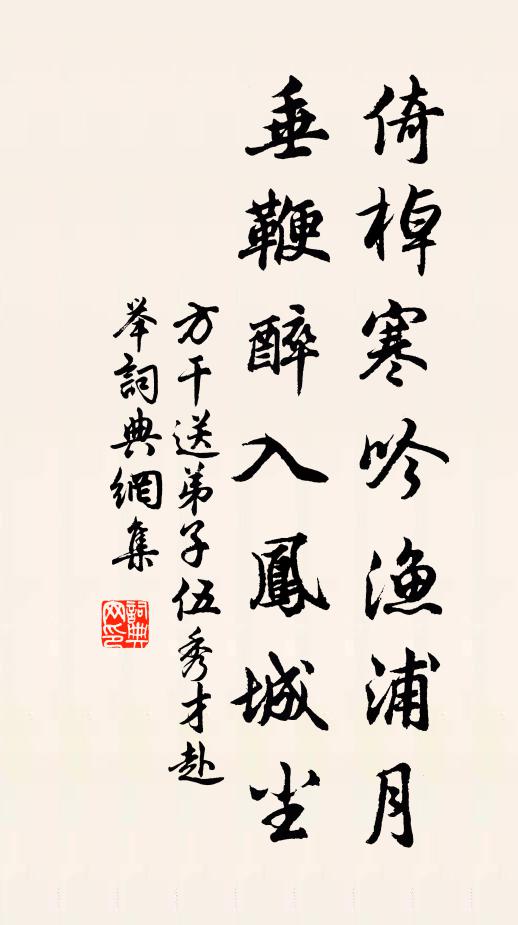 倚棹寒吟漁浦月
垂鞭醉入鳳城尘
方干送弟子伍秀才赴
举詞典網集
詞典网印